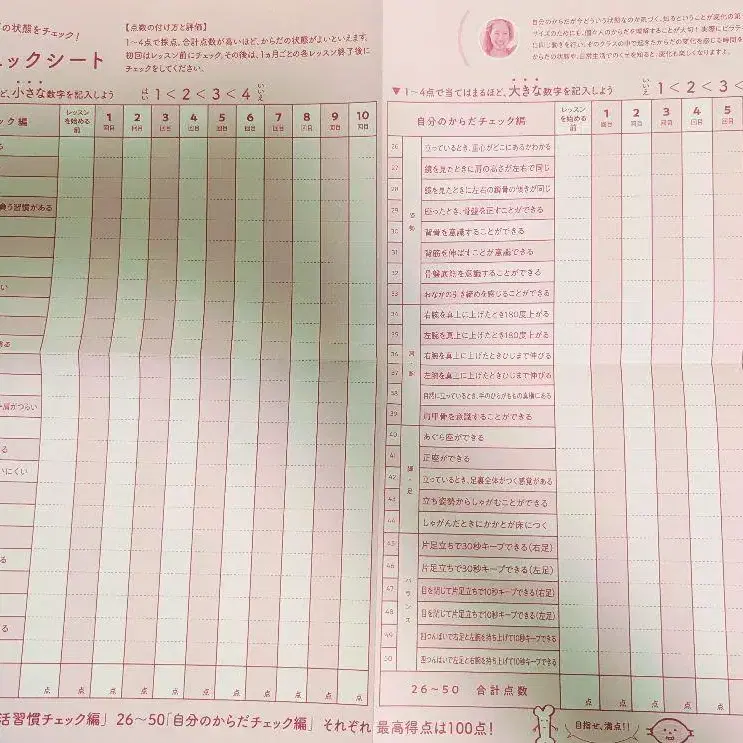 の状態をチェック!
ェックシート
【点数の付け方と評価】
1〜4点で採点。合計点数が高いほど、からだの状態がよいといえます。
初回はレッスン前にチェック。その後は、1ヵ月ごとの各レッスン終了後に
チェックをしてください。
ど、小さな数字を記入しよう
はい 1<2<3<4 いいえ
ック編
レッスンを始める前
1回目
2回目
3回目
4回目
5回目
6回目
7回目
8回目
9回目
10回目
る
負う習慣がある
い
きる
肩がつらい
る
いにくい
る
る
点 点 点 点 点 点 点 点 点 点 点
▼1〜4点で当てはまるほど、大きな数字を記入しよう
いいえ 1<2<3<
自分のからだチェック編
レッスンを始める前
1回目
2回目
3回目
4回目
5
26 立っているとき、重心がどこにあるかわかる
27 鏡を見たときに肩の高さが左右で同じ
28 鏡を見たときに左右の鎖骨の傾きが同じ
29 座ったとき、骨盤を正すことができる
30 背骨を意識することができる
31 背筋を伸ばすことが意識できる
32 骨盤底筋を意識することができる
33 おなかの引き締めを感じることができる
34 右腕を真上に上げたとき180度上がる
35 左腕を真上に上げたとき180度上がる
36 右腕を真上に上げたときひじまで伸びる
37 左腕を真上に上げたときひじまで伸びる
38 自然に立っているとき、手のひらがももの真横にある
39 肩甲骨を意識することができる
40 あぐら座ができる
41 正座ができる
42 立っているとき、足裏全体がつく感覚がある
43 立ち姿勢からしゃがむことができる
44 しゃがんだときにかかとが床につく
45 片足立ちで30秒キープできる(右足)
46 片足立ちで30秒キープできる(左足)
47 目を閉じて片足立ちで10秒キープできる(右足)
48 目を閉じて片足立ちで10秒キープできる(左足)
49 四つんばいで右足と左腕を持ち上げて10秒キープできる
50 四つんばいで左足と右腕を持ち上げて10秒キープできる
姿勢
肩・腕
脚・足
バランス
26〜50 合計点数
点 点 点 点 点
活習慣チェック編」 26〜50「自分のからだチェック編」 それぞれ最高得点は100点!
目指せ、満点!!